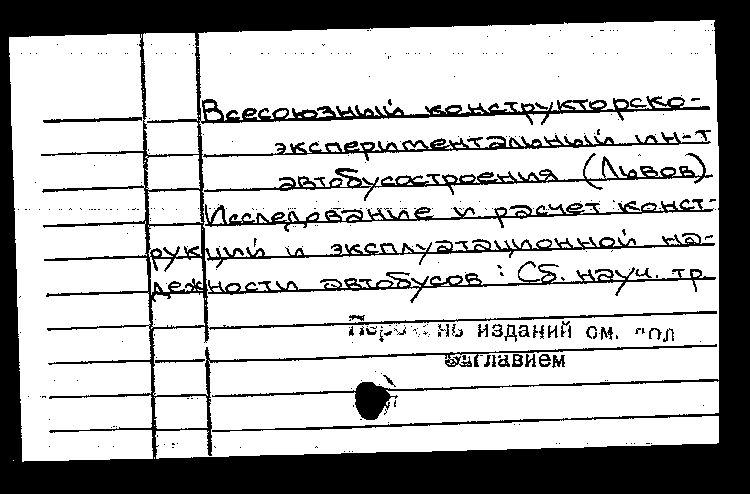 Всесоюзный конструкторско-
экспериментальный ин-т
автобусостроения (Львов)
Исследование и расчет конст-
рукций и эксплуатационной на-
дежности автобусов : Сб. науч. тр.
Перечень изданий см. под
заглавием